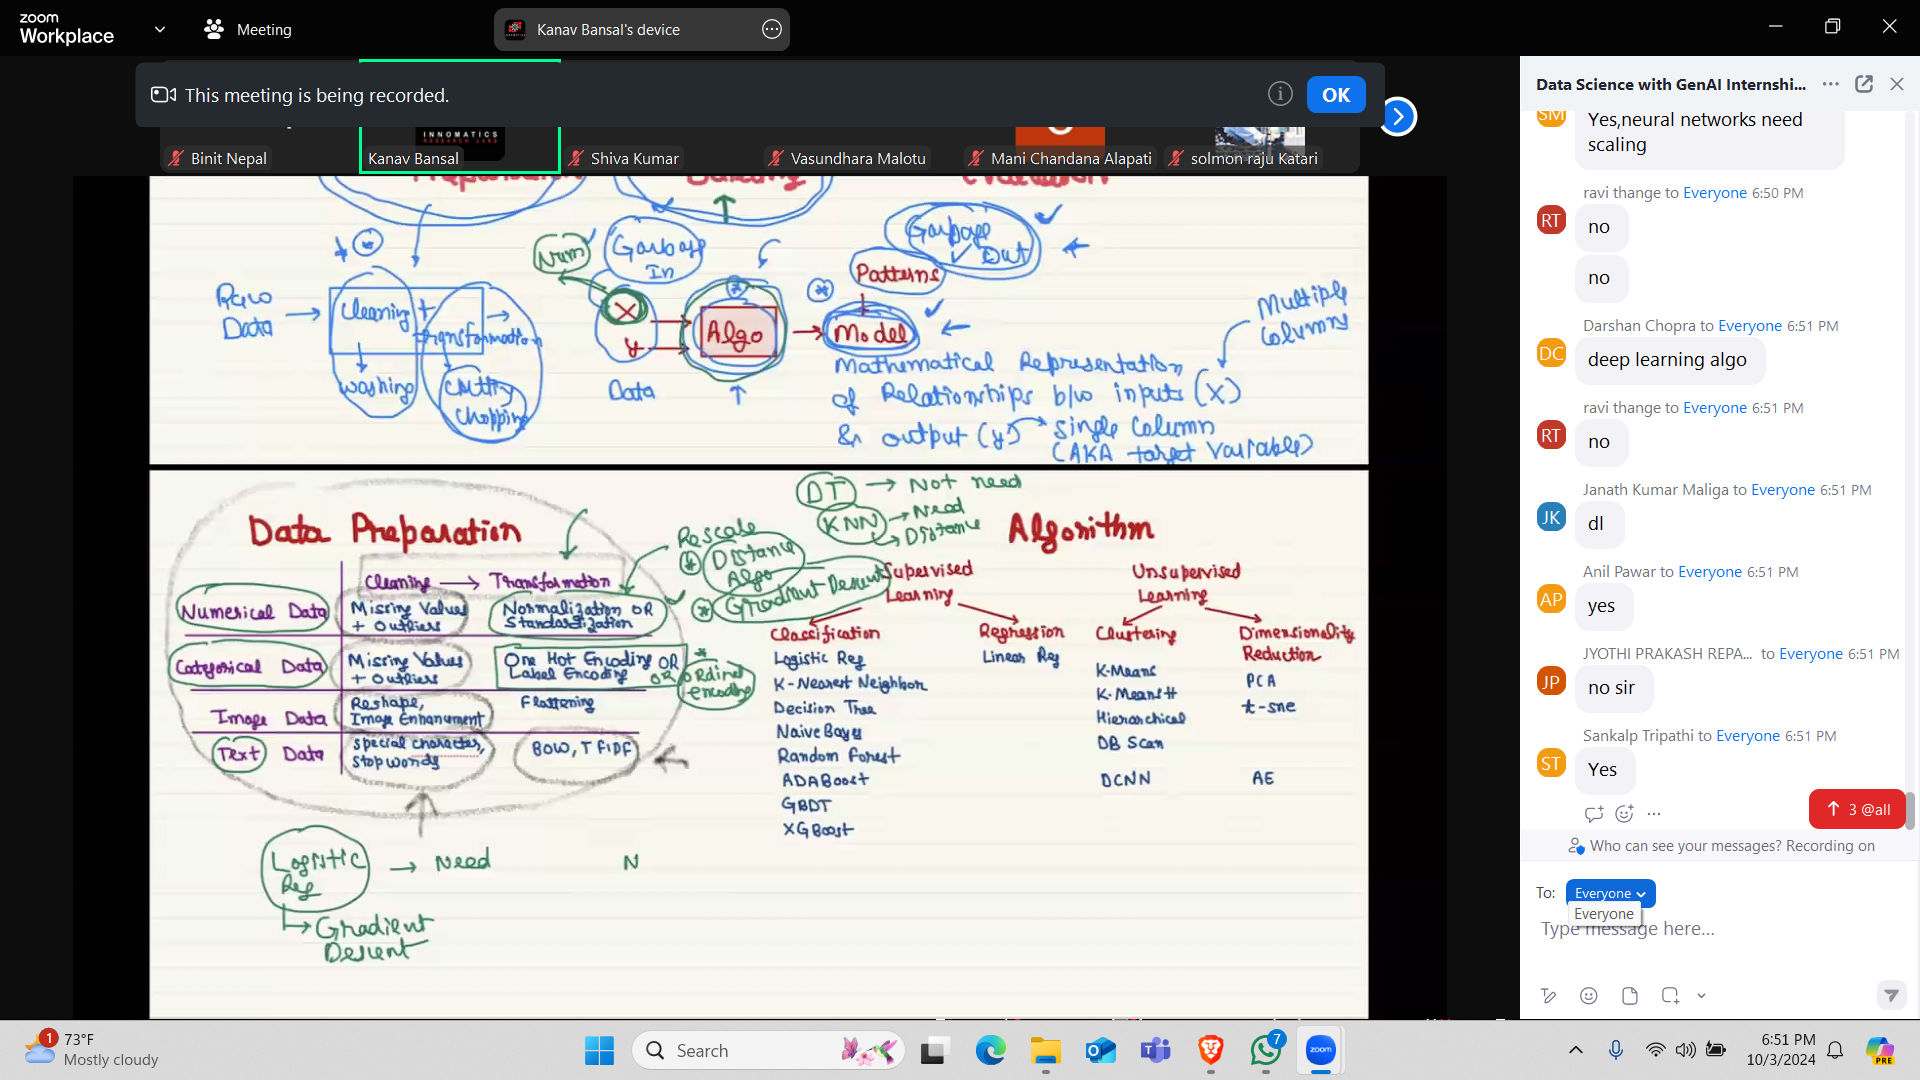 zoom
Workplace
Meeting
Kanav Bansal's device
This meeting is being recorded.
OK
INNOMATICS
Binit Nepal
Kanav Bansal
Shiva Kumar
Vasundhara Malotu
Mani Chandana Alapati
solmon raju Katari
Raw
Data
Cleaning +
transformation
washing
Cutting
Chopping
Num
Garbage
In
X
y
Data
Algo
Patterns
Garbage
Out
Model
Multiple
Columns
Mathematical Representation
of Relationships b/w inputs (X)
& output (y) → Single Column
(AKA target Variable)
Data Preparation
Cleaning → Transformation
Numerical Data
Missing Values
+ Outliers
Normalization OR
Standardization
Categorical Data
Missing Values
+ Outliers
One Hot Encoding OR
Label Encoding OR
Ordinal
encoding
Image Data
Reshape,
Image Enhanument
Flattening
Text Data
special character,
stopwords
BOW, TFIDF
Rescale
Distance
Algo
Gradient Descent
DT → Not need
KNN → Need
→ Distance
Algorithm
Supervised
Learning
Unsupervised
Learning
Classification
Logistic Reg
K-Nearest Neighbor
Decision Tree
Naive Bayes
Random Forest
ADABoost
GBDT
XGBoost
Regression
Linear Reg
Clustering
K-Means
K-Means++
Hierarchical
DB Scan
DCNN
Dimensionality
Reduction
PCA
t-sne
AE
Logistic
Reg
→ Need
N
Gradient
Descent
Data Science with GenAI Internshi...
SM
Yes,neural networks need
scaling
ravi thange to Everyone 6:50 PM
RT
no
no
Darshan Chopra to Everyone 6:51 PM
DC
deep learning algo
ravi thange to Everyone 6:51 PM
RT
no
Janath Kumar Maliga to Everyone 6:51 PM
JK
dl
Anil Pawar to Everyone 6:51 PM
AP
yes
JYOTHI PRAKASH REPA... to Everyone 6:51 PM
JP
no sir
Sankalp Tripathi to Everyone 6:51 PM
ST
Yes
3 @all
Who can see your messages? Recording on
To: Everyone
Everyone
Type message here...
1
73°F
Mostly cloudy
Search
7
zoom
6:51 PM
10/3/2024
PRE